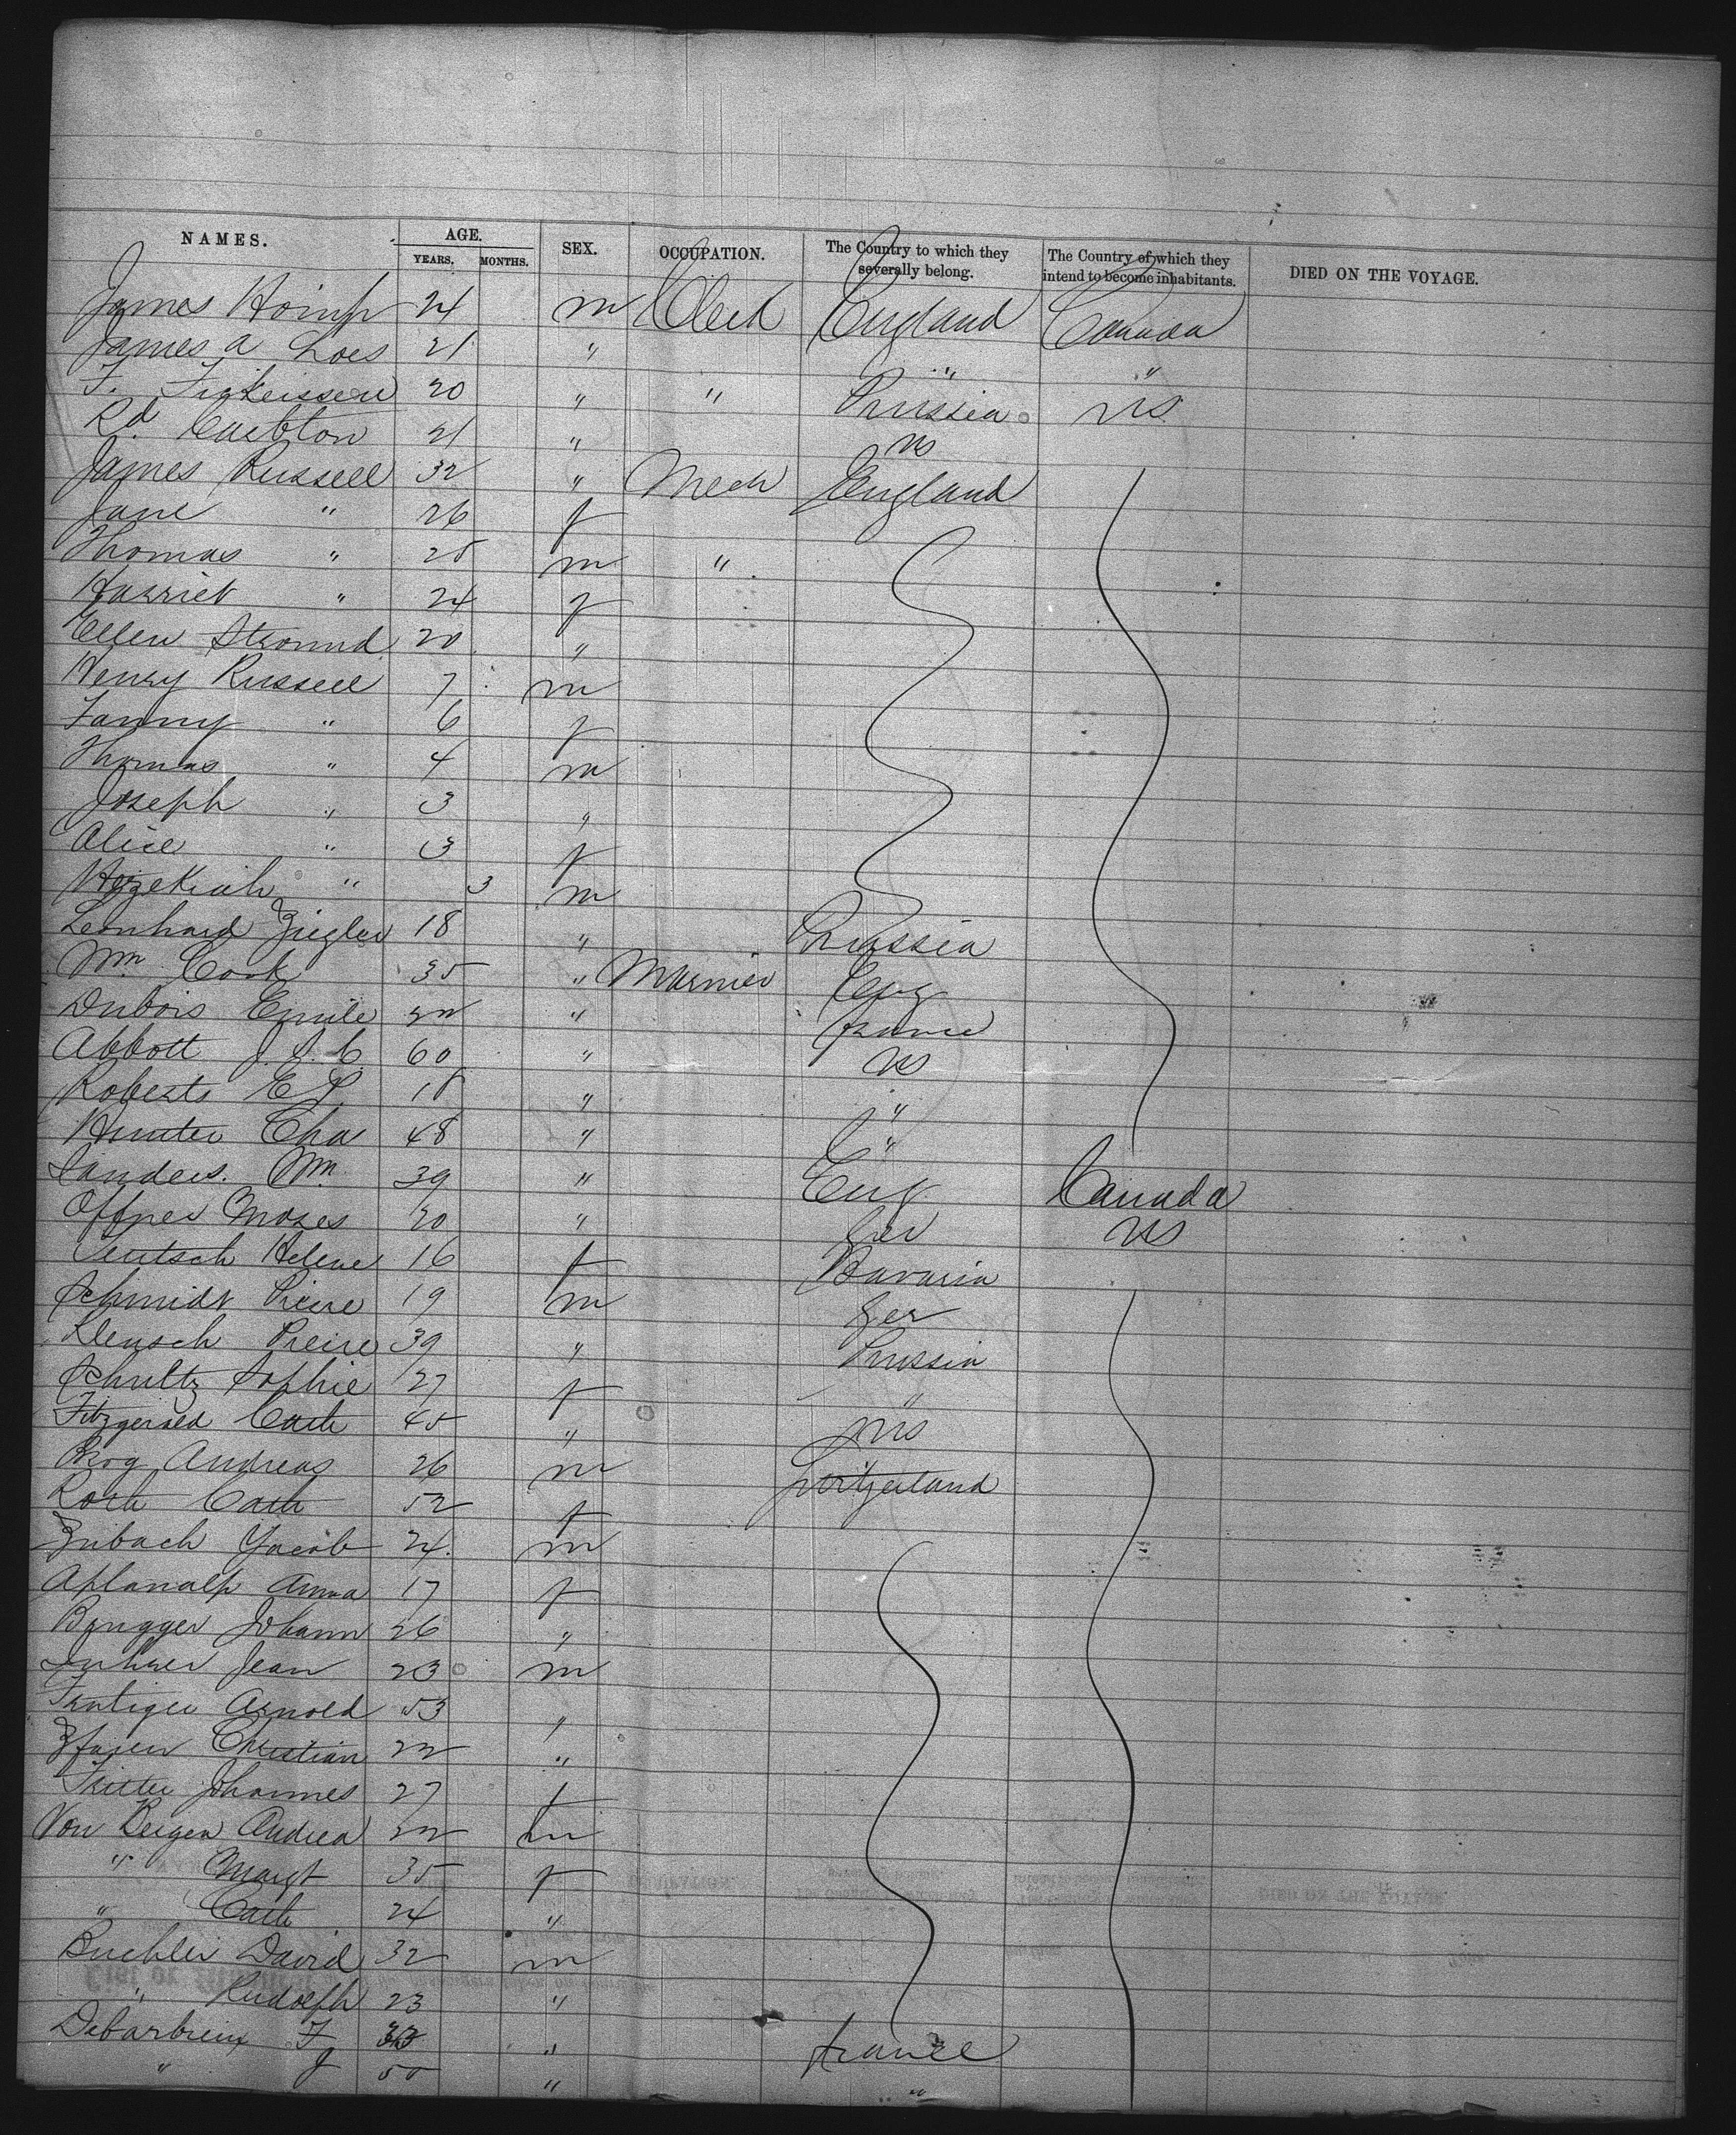 NAMES. AGE. SEX. OCCUPATION. The Country to which they severally belong. The Country of which they intend to become inhabitants. DIED ON THE VOYAGE.
YEARS. MONTHS.
James 24 m Clerk England Canada
James A 21 " " "
F. 20 " " Prussia US
Rd 21 " US
James Russell 32 " Mech England
Jane " 26 f
Thomas " 25 m "
Harriet " 24 f
Ellen 20 "
Henry Russell 7 m
Fanny " 6 f
Thomas " 4 m
Joseph " 3 "
Alice " 3 f
Hezekiah " 3 m
Leonhard Ziegler 18 " Prussia
Wm Cook 35 " Marnier Eng
Dubois Emile 22 " France
Abbott J. S. C. 60 " US
Roberts E P. 18 " "
Hunter Cha 48 " "
Sanders. Wm 39 " Eng Canada
Offner Moses 20 " Ger US
Helene 16 f Bavaria
Schmidt Pierre 19 m Ger
Klensch Pierre 39 " Prussia
Schultz Sophie 27 f "
Fitzgerald Cath 45 " US
Andreas 26 m Switzerland
Roth Cath 52 f
Zubach Jacob 24. m
Aplanalp Anna 17 f
Brugger Johann 26 "
Jean 23 m
Frutiger Arnold 53 "
Christian 22 "
Johannes 27 f
Von Bergen Andrea 22 m
" Margt 35 f
" Cath 24 "
Buehler David 32 m
" Rudolph 23 "
Debarbieux F " France
" J 50 " "